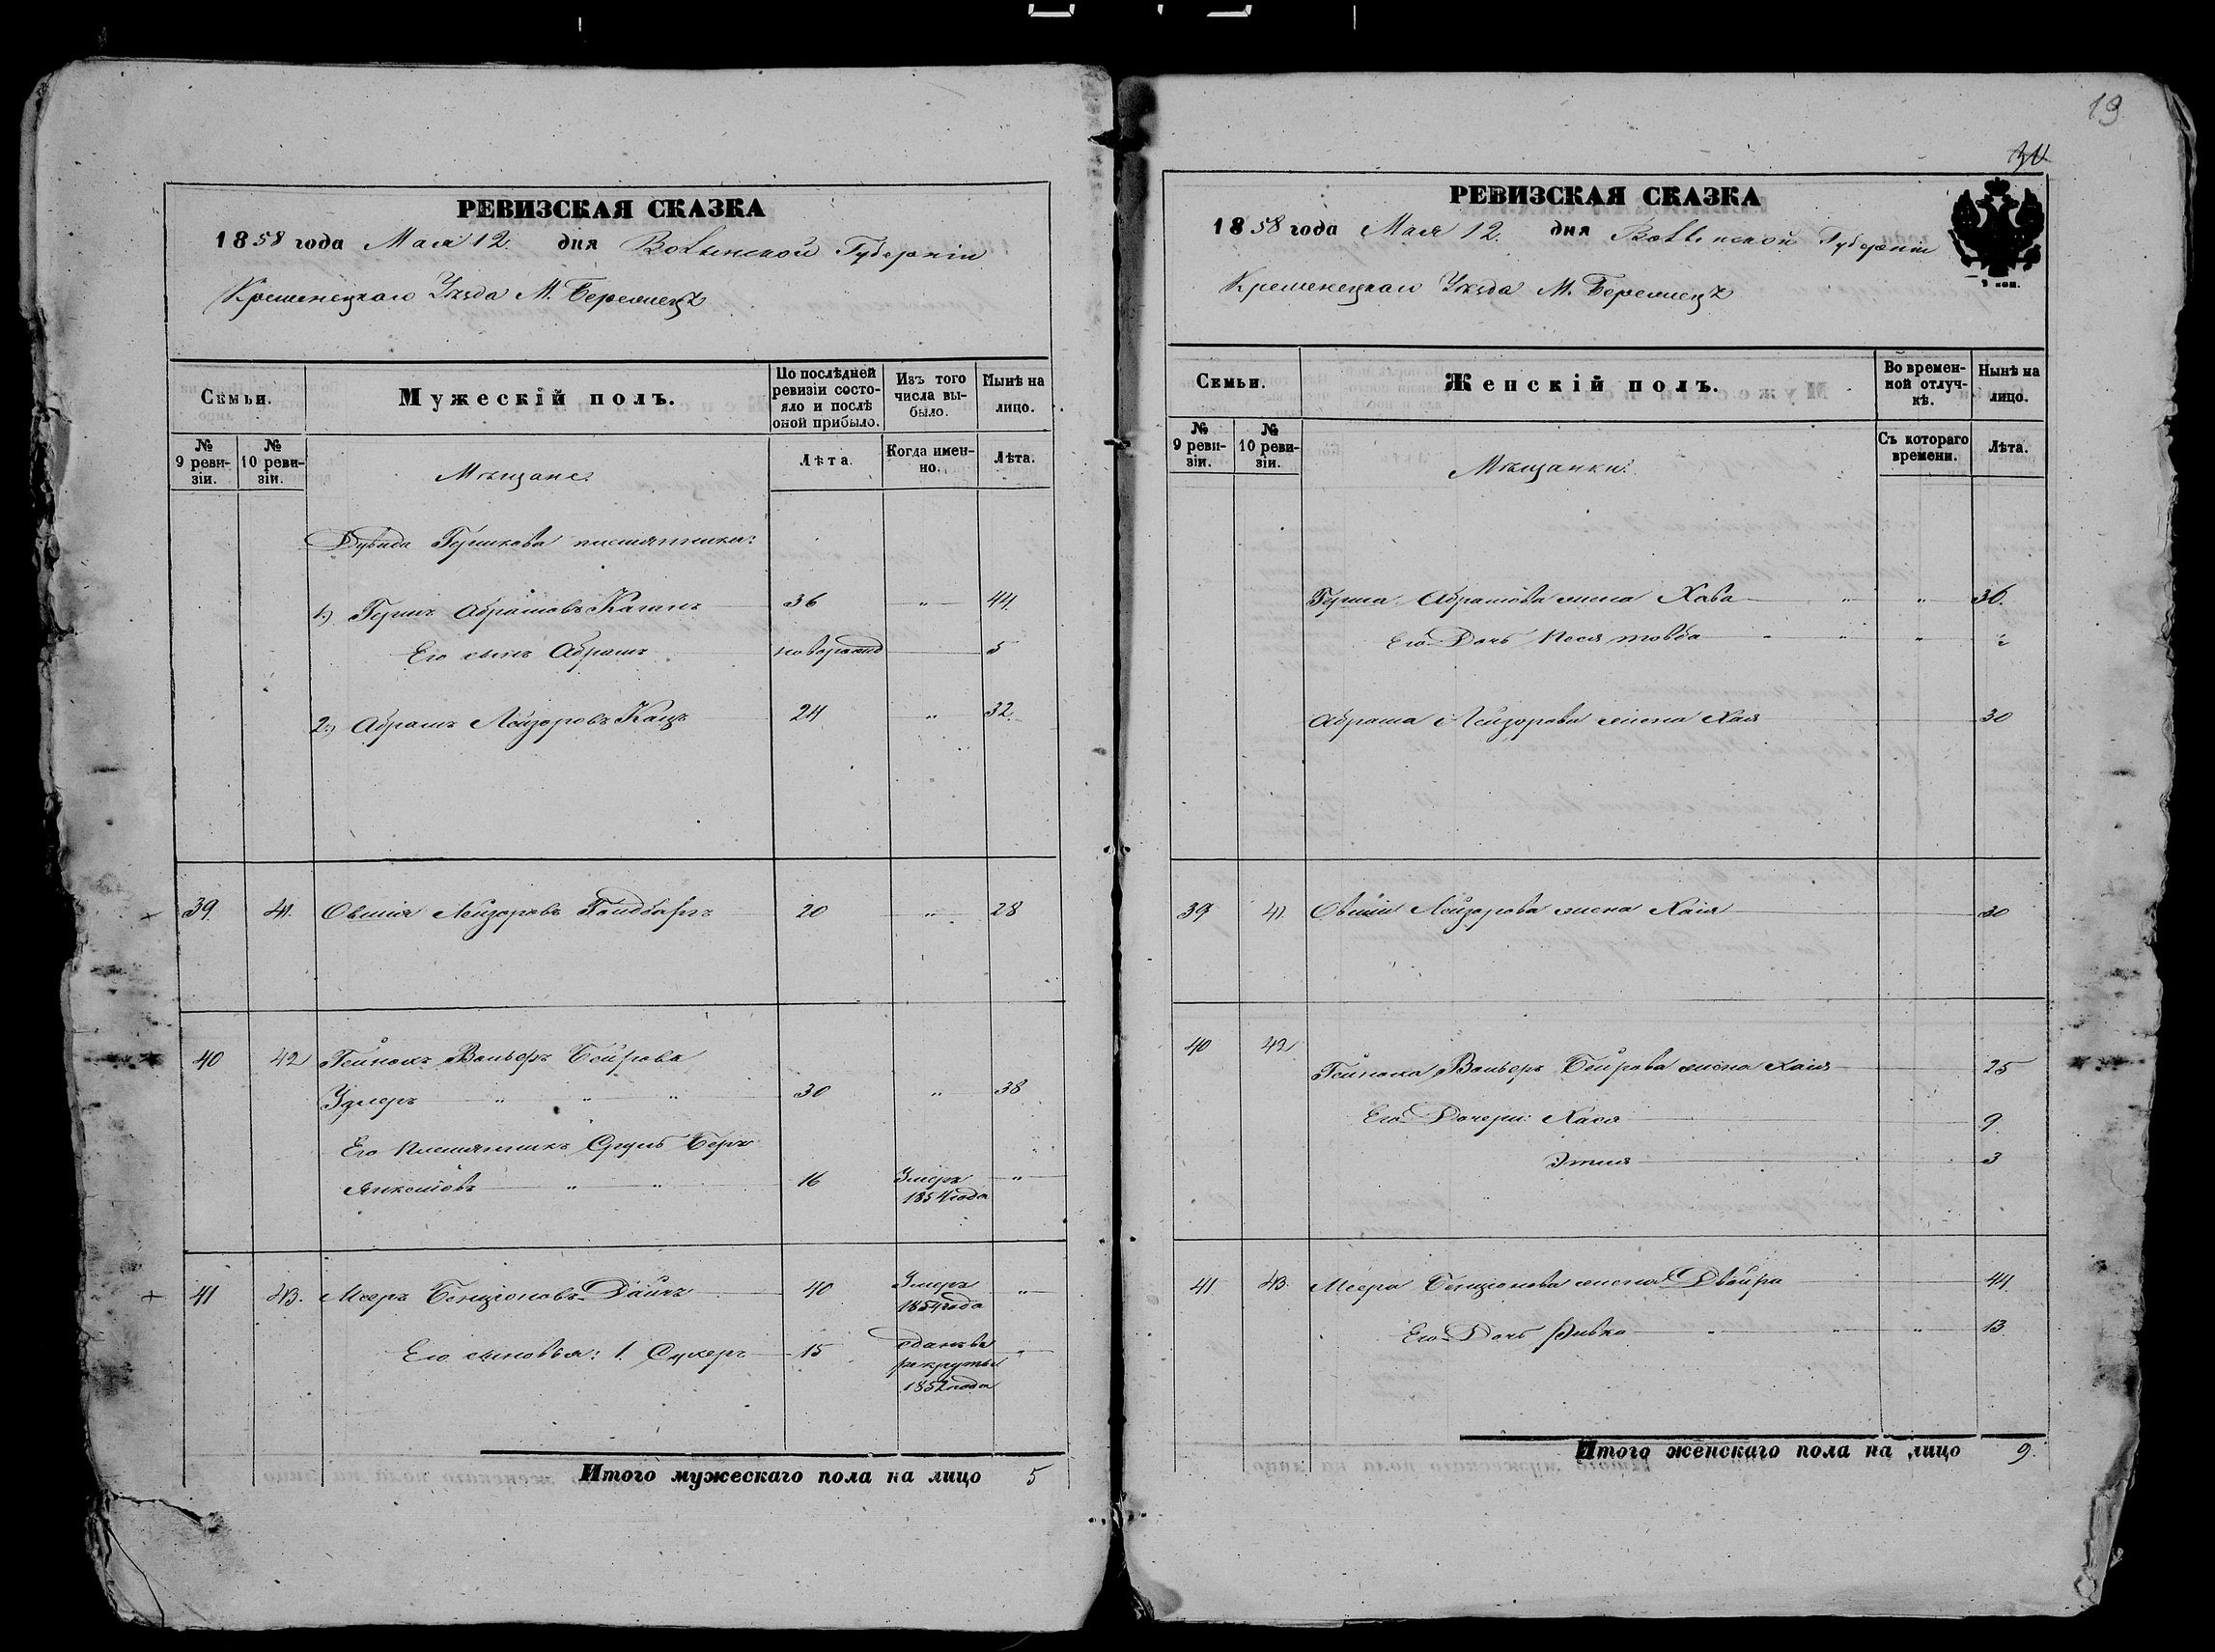 РЕВИЗСКАЯ СКАЗКА
1858 года Мая 12. дня Волынской Губерніи
Кременецкаго Уѣзда М. Бережецъ
Семьи.
Мужескій полъ.
По послѣдней ревизіи состояло и послѣ оной прибыло.
Изъ того числа выбыло.
Нынѣ на лицо.
№ 9 ревизіи.
№ 10 ревизіи.
Мѣщане.
Лѣта.
Когда именно.
Лѣта.
Дувида Гершкова племянники:
1.) Гершъ Абрамовъ Каганъ 36 " 44.
Его сынъ Абрамъ новорожд 5
2.) Абрамъ Лейзоровъ Кацъ 24 " 32.
39. 41. Овшія Лейзоровъ 20 " 28
40 42 Гейнохъ Вольфъ Бейрова
30 " 38
Его племянникъ Сруль Беръ
Янкелювъ " " 16 Умеръ 1854 года "
41 43. Мееръ Бенціоновъ Дайчъ 40 Умеръ 1854 года "
Его сыновья: 1. Сухеръ 15 сданъ въ рекруты 1852 года "
Итого мужескаго пола на лицо 5
19
РЕВИЗСКАЯ СКАЗКА
1858 года Мая 12. дня Волынской Губерніи
Кременецкаго Уѣзда М. Бережецъ
Семьи.
Женскій полъ.
Во временной отлучкѣ.
Нынѣ на лицо.
№ 9 ревизіи.
№ 10 ревизіи.
Мѣщанки.
Съ котораго времени.
Лѣта.
Герша Абрамова жена Хава " " 36.
Его Дочь Песя товба " " "
Абрама Лейзорова жена Хая 30
39 41 Овшіи Лейзорова жена Хаія 30
40 42
Гейноха Вольфъ Бейрова жена Хаія 25
Его Дочери: Хася 9.
Этля 3
41 43. Меера Бенціонова жена Двойра 44.
Его Дочь Ривка " " " 13.
Итого женскаго пола на лицо 9.